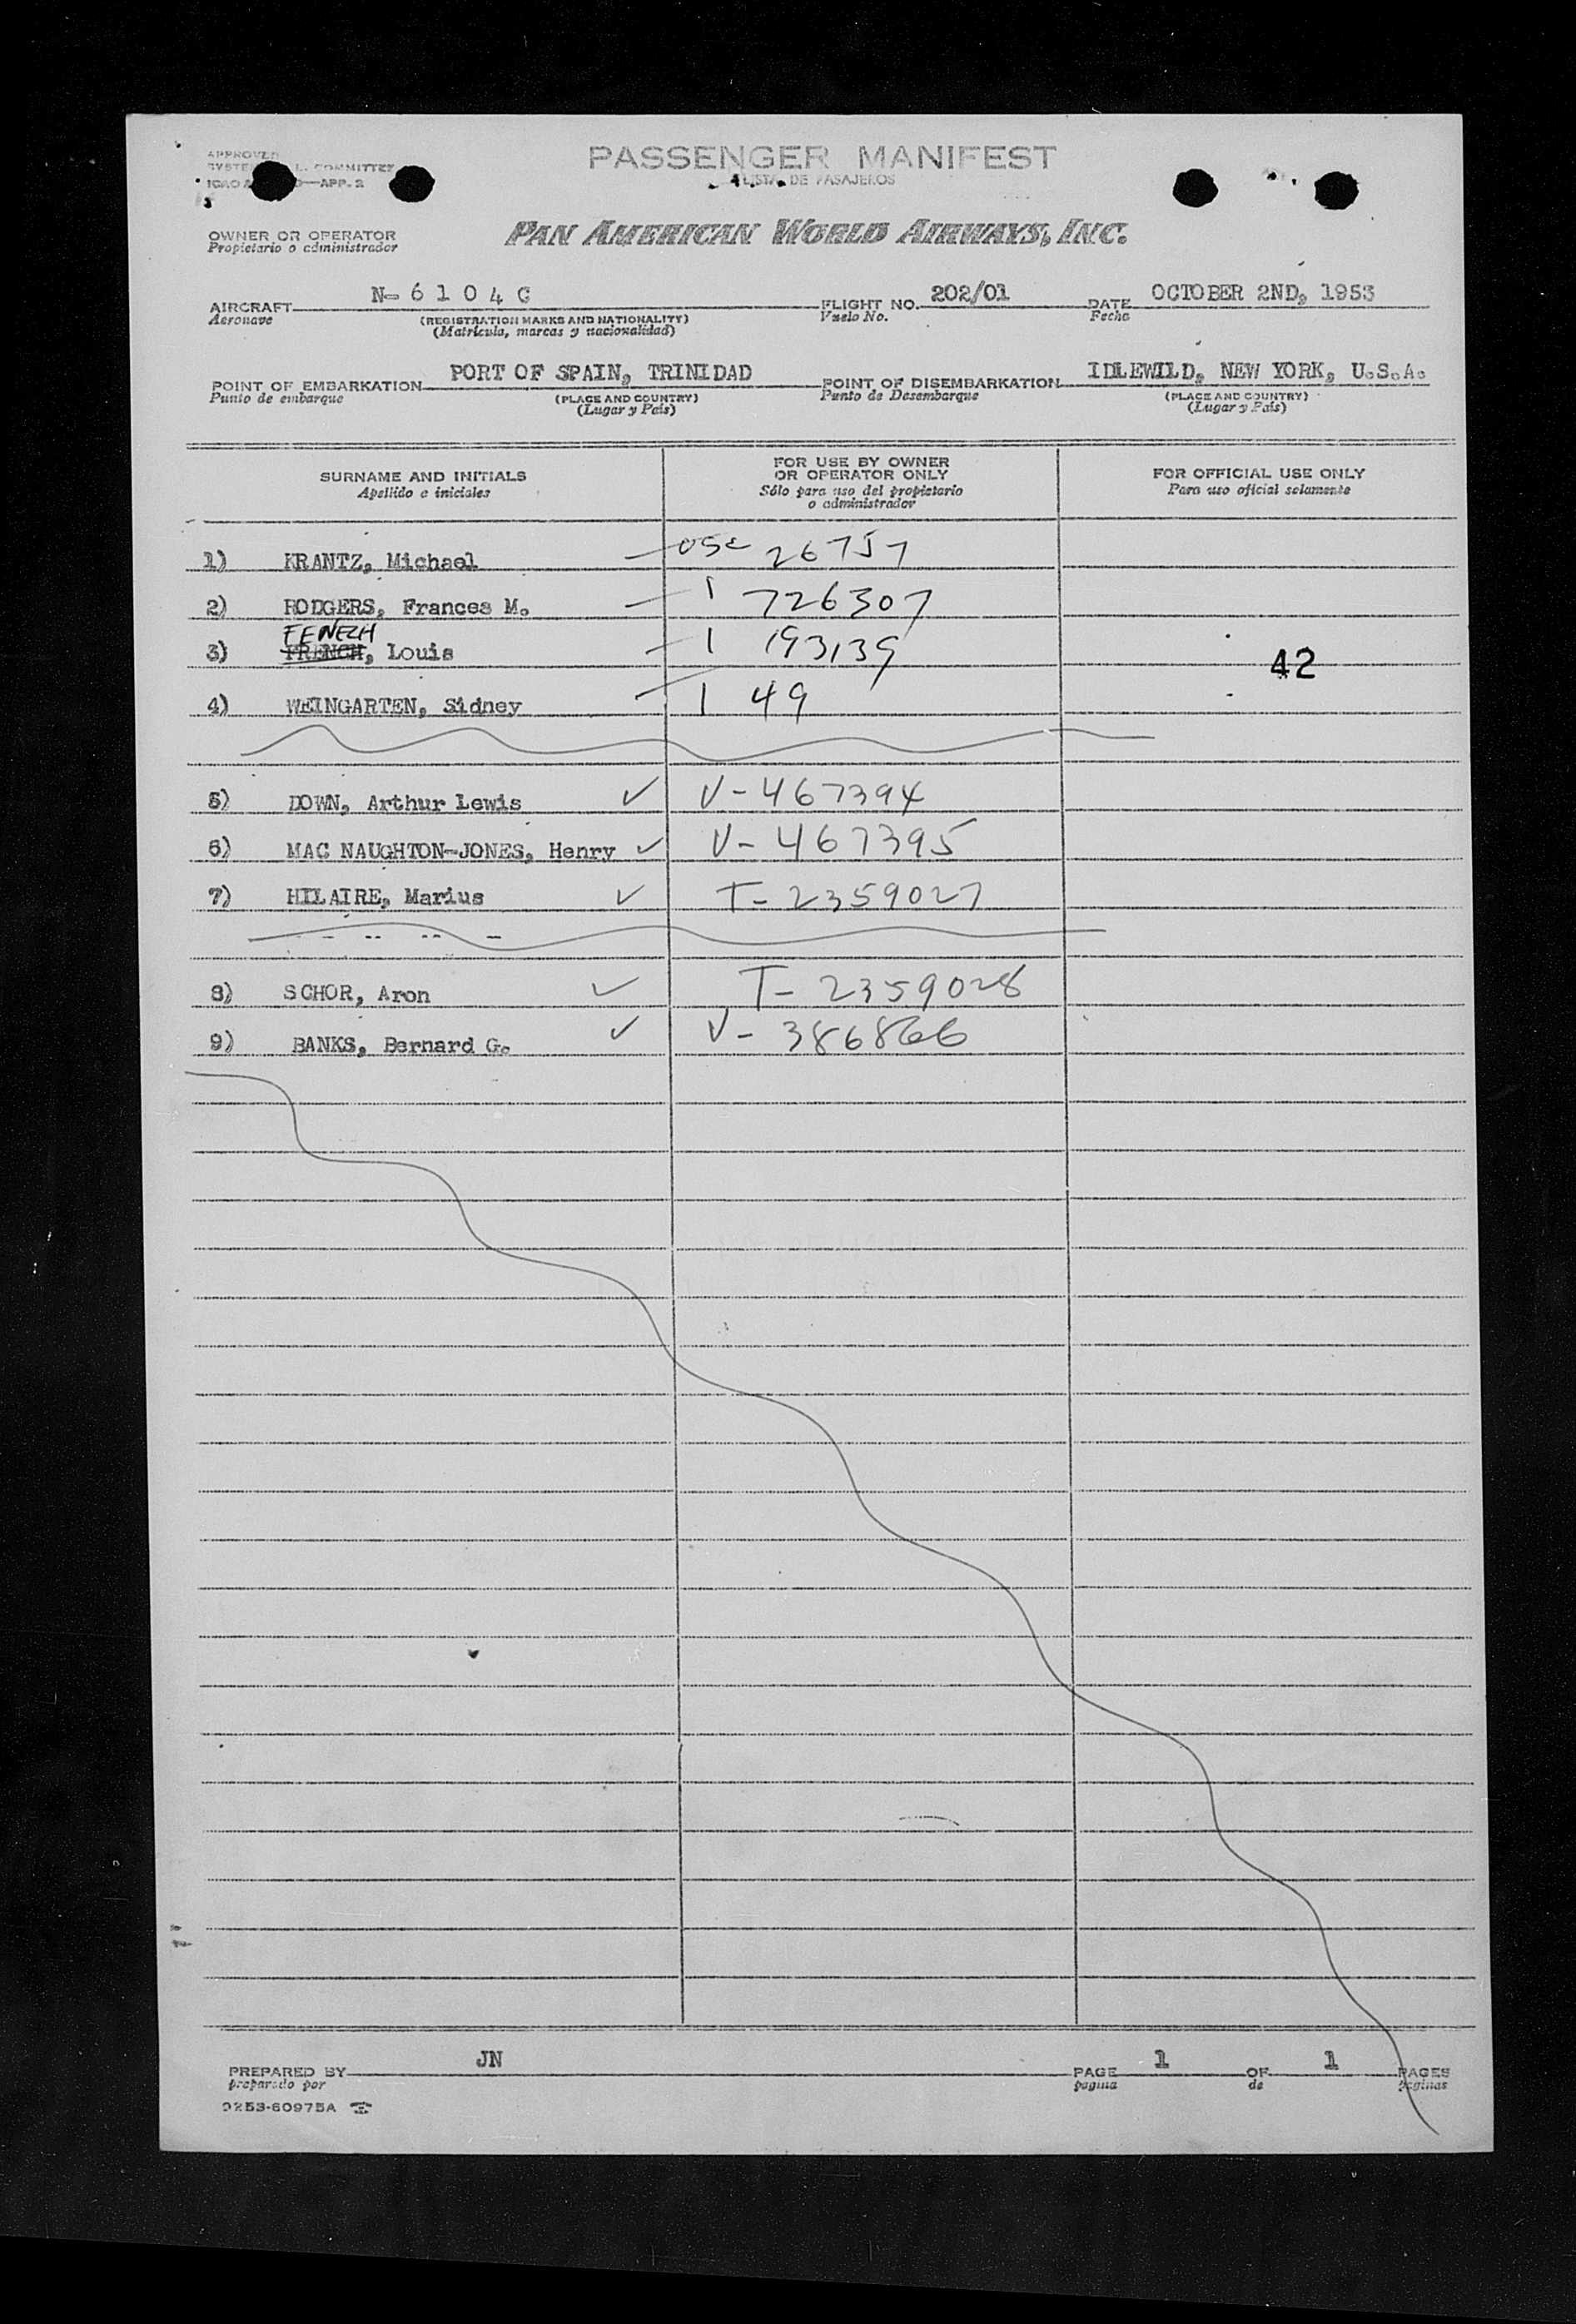 APPROVED
COMMITTEE
APP. 2
PASSENGER MANIFEST
LISTA DE PASAJEROS
OWNER OR OPERATOR
Propietario o administrador
PAN AMERICAN WORLD AIRWAYS, INC.
AIRCRAFT N-6104C FLIGHT NO. 202/01 DATE OCTOBER 2ND, 1953
Aeronave (REGISTRATION MARKS AND NATIONALITY) Vuelo No. Fecha
(Matrícula, marcas y nacionalidad)
POINT OF EMBARKATION PORT OF SPAIN, TRINIDAD POINT OF DISEMBARKATION IDLEWILD, NEW YORK, U.S.A.
Punto de embarque (PLACE AND COUNTRY) Punto de Desembarque (PLACE AND COUNTRY)
(Lugar y País) (Lugar y País)
SURNAME AND INITIALS FOR USE BY OWNER OR OPERATOR ONLY FOR OFFICIAL USE ONLY
Apellido e iniciales Sólo para uso del propietario o administrador Para uso oficial solamente
1) KRANTZ, Michael USC 26757
2) RODGERS, Frances M. 1 726307
FENECH
3) FRENCH, Louis 1 193139
42
4) WEINGARTEN, Sidney 1 49
5) DOWN, Arthur Lewis ✓ V-467394
6) MAC NAUGHTON-JONES, Henry ✓ V-467395
7) HILAIRE, Marius ✓ T-2359027
8) SCHOR, Aron ✓ T-2359028
9) BANKS, Bernard G. ✓ V-386866
PREPARED BY JN PAGE 1 OF 1 PAGES
preparado por pagina de paginas
0253-60975A